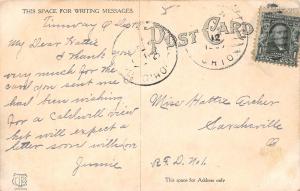 THIS SPACE FOR WRITING MESSAGES.
POST CARD
My Dear Hattie
I thank you
very much for the
card you sent me
had been wishing
for a Caldwell view
but will expect a
letter soon
Jennie
12
OHIO
Miss Hattie Archer
Sarahsville
O
R.F.D. No 1
This space for Address only